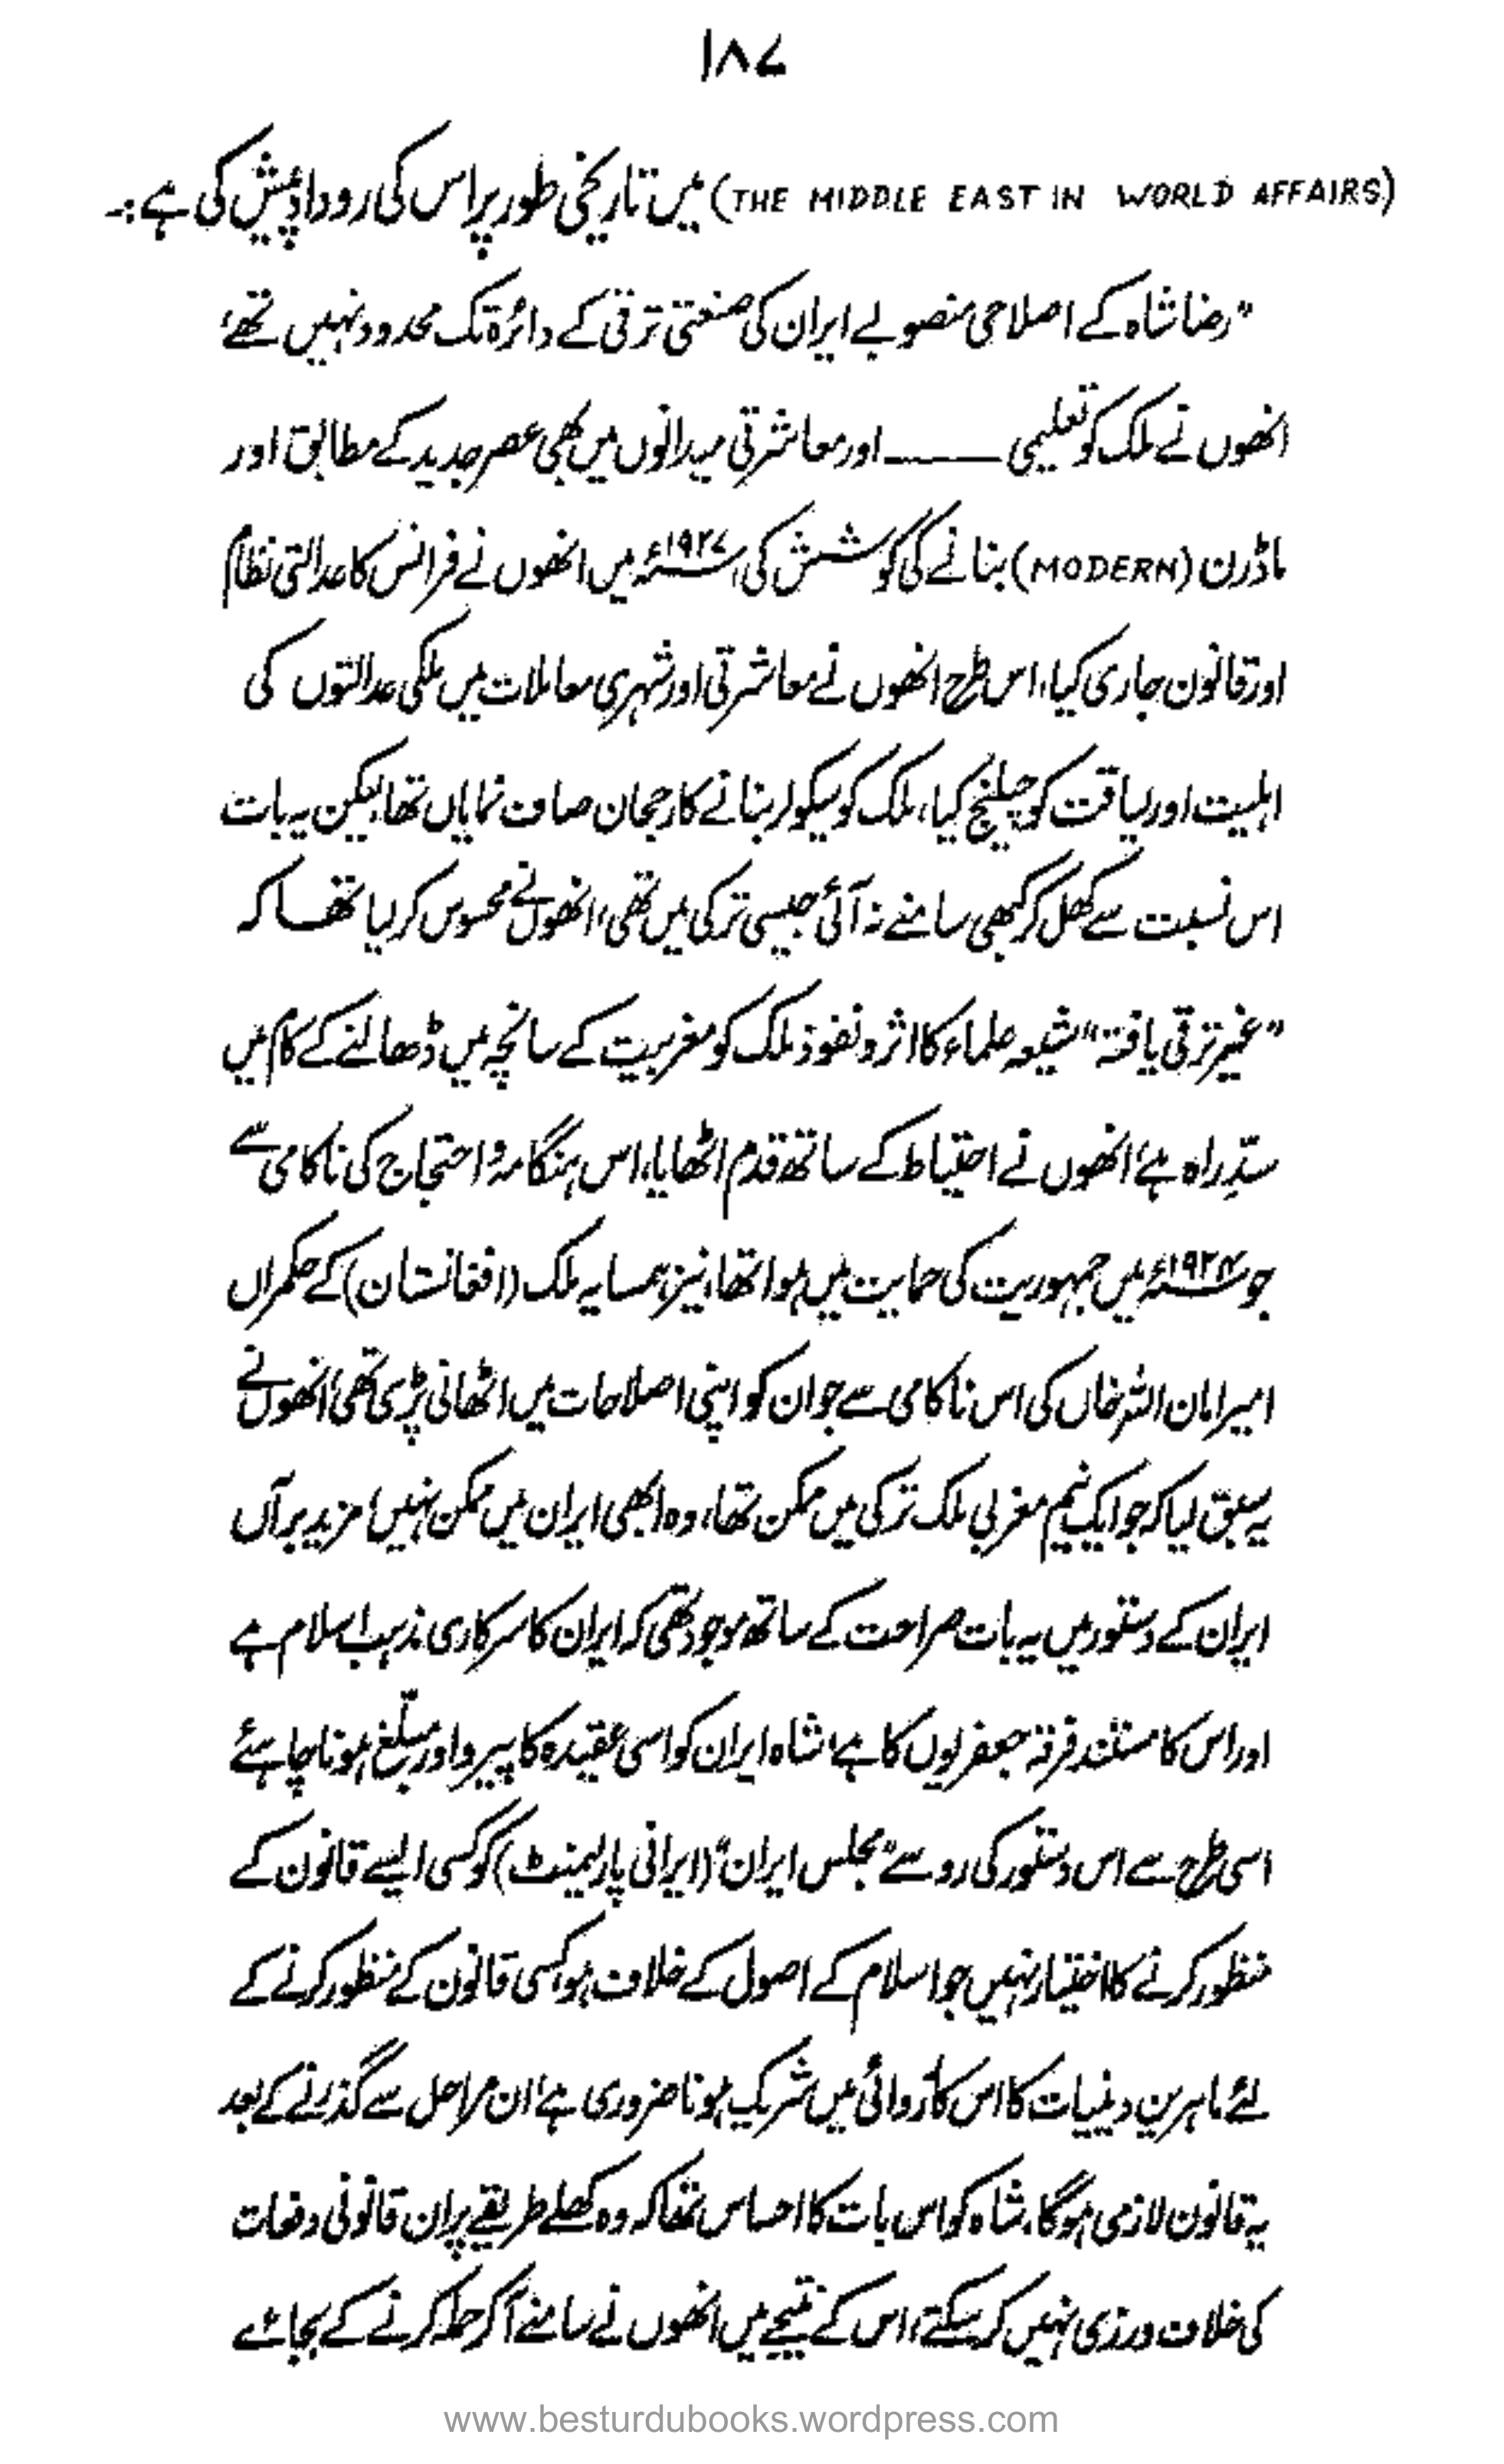 ۱۸۷
(THE MIDDLE EAST IN WORLD AFFAIRS) میں تاریخی طور پر اس کی روداد پیش کی ہے:۔
"رضا شاہ کے اصلاحی منصوبے ایران کی صنعتی ترقی کے دائرہ تک محدود نہیں تھے،
انھوں نے ملک کو تعلیمی ــــــ اور معاشرتی میدانوں میں بھی عصر جدید کے مطابق اور
ماڈرن (MODERN) بنانے کی کوشش کی، ۱۹۲۷ء میں انھوں نے فرانس کا عدالتی نظام
اور قانون جاری کیا، اس طرح انھوں نے معاشرتی اور شہری معاملات میں ملکی عدالتوں کی
اہلیت اور لیاقت کو چیلنج کیا، ملک کو سیکولر بنانے کا رجحان صاف نمایاں تھا، لیکن یہ بات
اس نسبت سے کھل کر کبھی سامنے نہ آئی جیسی ترکی میں تھی، انھوں نے محسوس کر لیا تھا کہ
"غیر ترقی یافتہ" شیعہ علماء کا اثر و نفوذ ملک کو مغربیت کے سانچہ میں ڈھالنے کے کام میں
سدِّ راہ ہے، انھوں نے احتیاط کے ساتھ قدم اٹھایا، اس ہنگامہ و احتجاج کی ناکامی سے
جو ۱۹۲۴ء میں جمہوریت کی حمایت میں ہوا تھا، نیز ہمسایہ ملک (افغانستان) کے حکمراں
امیر امان اللہ خاں کی اس ناکامی سے جو ان کو اپنی اصلاحات میں اٹھانی پڑی تھی، انھوں نے
یہ سبق لیا کہ جو ایک نیم مغربی ملک ترکی میں ممکن تھا، وہ ابھی ایران میں ممکن نہیں، مزید برآں
ایران کے دستور میں یہ بات صراحت کے ساتھ موجود تھی کہ ایران کا سرکاری مذہب اسلام ہے
اور اس کا مستند فرقہ جعفریوں کا ہے، شاہ ایران کو اسی عقیدہ کا پیرو اور مبلّغ ہونا چاہئے
اسی طرح سے اس دستور کی رو سے "مجلس ایران" (ایرانی پارلیمنٹ) کو کسی ایسے قانون کے
منظور کرنے کا اختیار نہیں جو اسلام کے اصول کے خلاف ہو، کسی قانون کے منظور کرنے کے
لئے ماہرین دینیات کا اس کارروائی میں شریک ہونا ضروری ہے، ان مراحل سے گذرنے کے بعد
یہ قانون لازمی ہوگا، شاہ کو اس بات کا احساس تھا کہ وہ کھلے طریقے پر ان قانونی دفعات
کی خلاف ورزی نہیں کر سکتے، اس کے نتیجے میں انھوں نے سامنے آکر حملہ کرنے کے بجائے
www.besturdubooks.wordpress.com